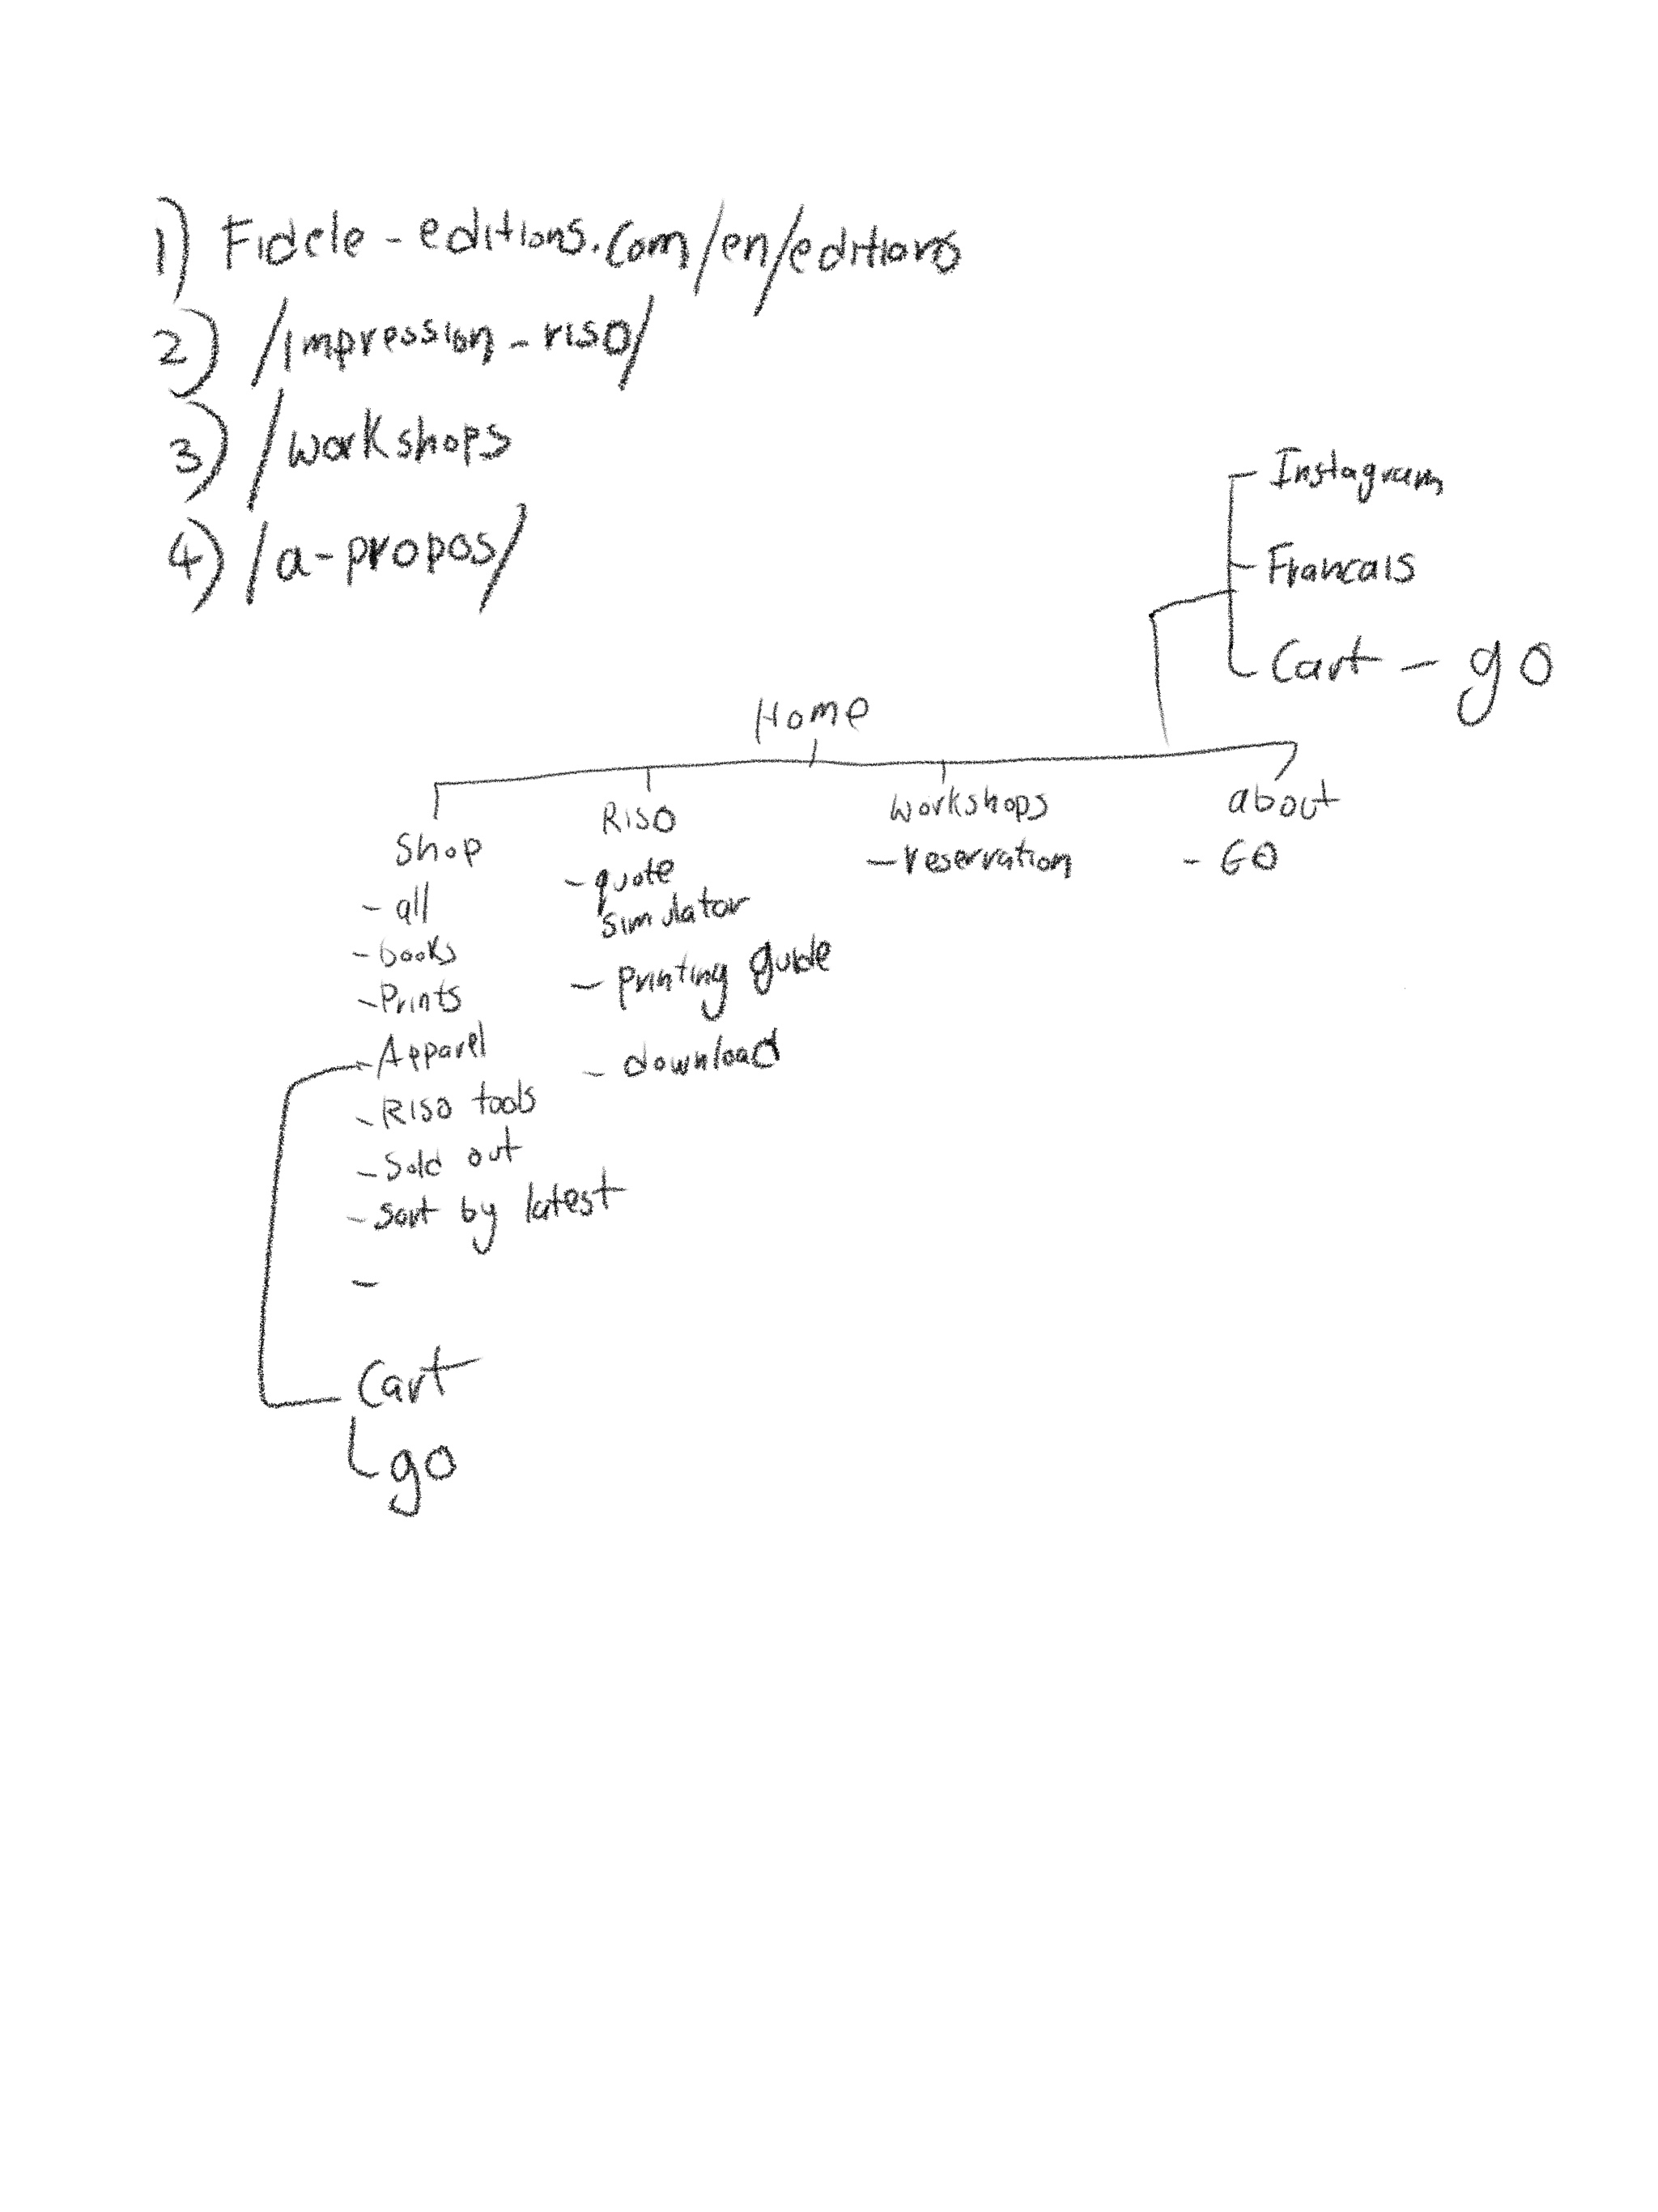 1) Fidele-editions.com/en/editions
2) /impression-riso/
3) /workshops
4) /a-propos/
- Instagram
- Francais
Cart - go
Home
Shop
- all
- books
- Prints
- Apparel
- Riso tools
- Sold out
- sort by latest
-
Cart
go
Riso
- quote
simulator
- printing guide
- download
workshops
- reservation
about
- GO